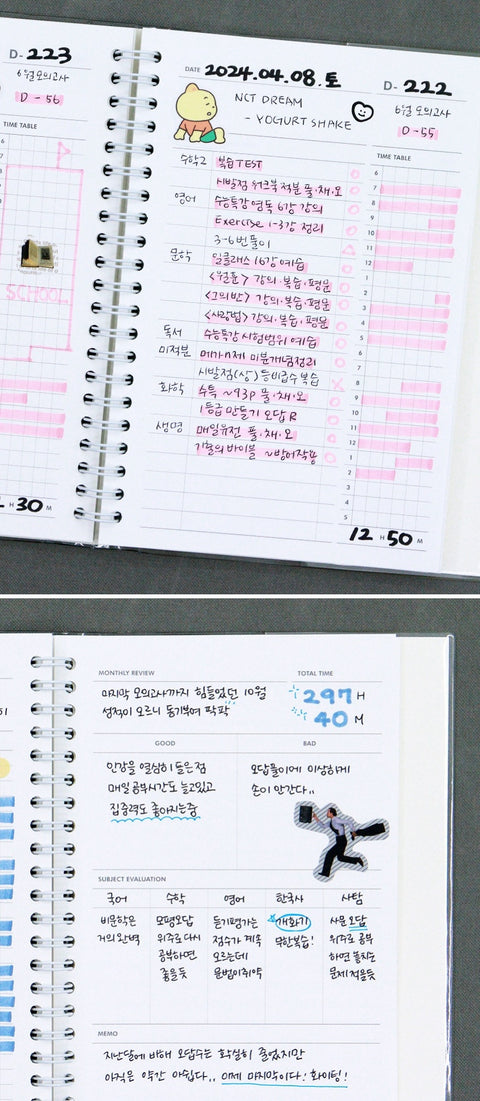 D-223
6월 모의고사
D-56
TIME TABLE
SCHOOL
H 30 M
DATE 2024.04.08.토
NCT DREAM
- YOGURT SHAKE
D-222
6월 모의고사
D-55
TIME TABLE
수학2 복습 TEST
시발점 워크북 적분 풀·채·오
영어 수능특강 영독 6강 강의
Exercise 1-3강 정리
3-6번 풀이
문학 일클래스 16강 예습
강의·복습·평문
<그의 반> 강의·복습·평문
<사랑법> 강의·복습·평문
독서 수능특강 시험범위 예습
미적분 메가n제 미분개념정리
시발점(상) 등비급수 복습
화학 수특 ~93p 풀·채·오
1등급 만들기 오답 R
생명 매일유전 풀·채·오
기출의 바이블 ~방어작용
6
7
8
9
10
11
12
1
2
3
4
5
6
7
8
9
10
11
12
1
2
3
4
5
12 H 50 M
MONTHLY REVIEW
마지막 모의고사까지 힘들었던 10월
성적이 오르니 동기부여 팍팍
TOTAL TIME
297 H
40 M
GOOD
인강을 열심히 들은 점
매일 공부시간도 늘고있고
집중력도 좋아지는중
BAD
오답풀이에 이상하게
손이 안간다..
SUBJECT EVALUATION
국어
비문학은
거의 완벽
수학
모평오답
위주로 다시
공부하면
좋을듯
영어
듣기평가는
점수가 계속
오르는데
문법이 취약
한국사
개화기
무한복습!
사탐
사문 오답
위주로 공부
하면 놓치는
문제 적을듯
MEMO
지난달에 비해 오답수는 확실히 줄었지만
아직은 약간 아쉽다.. 이제 마지막이다! 화이팅!